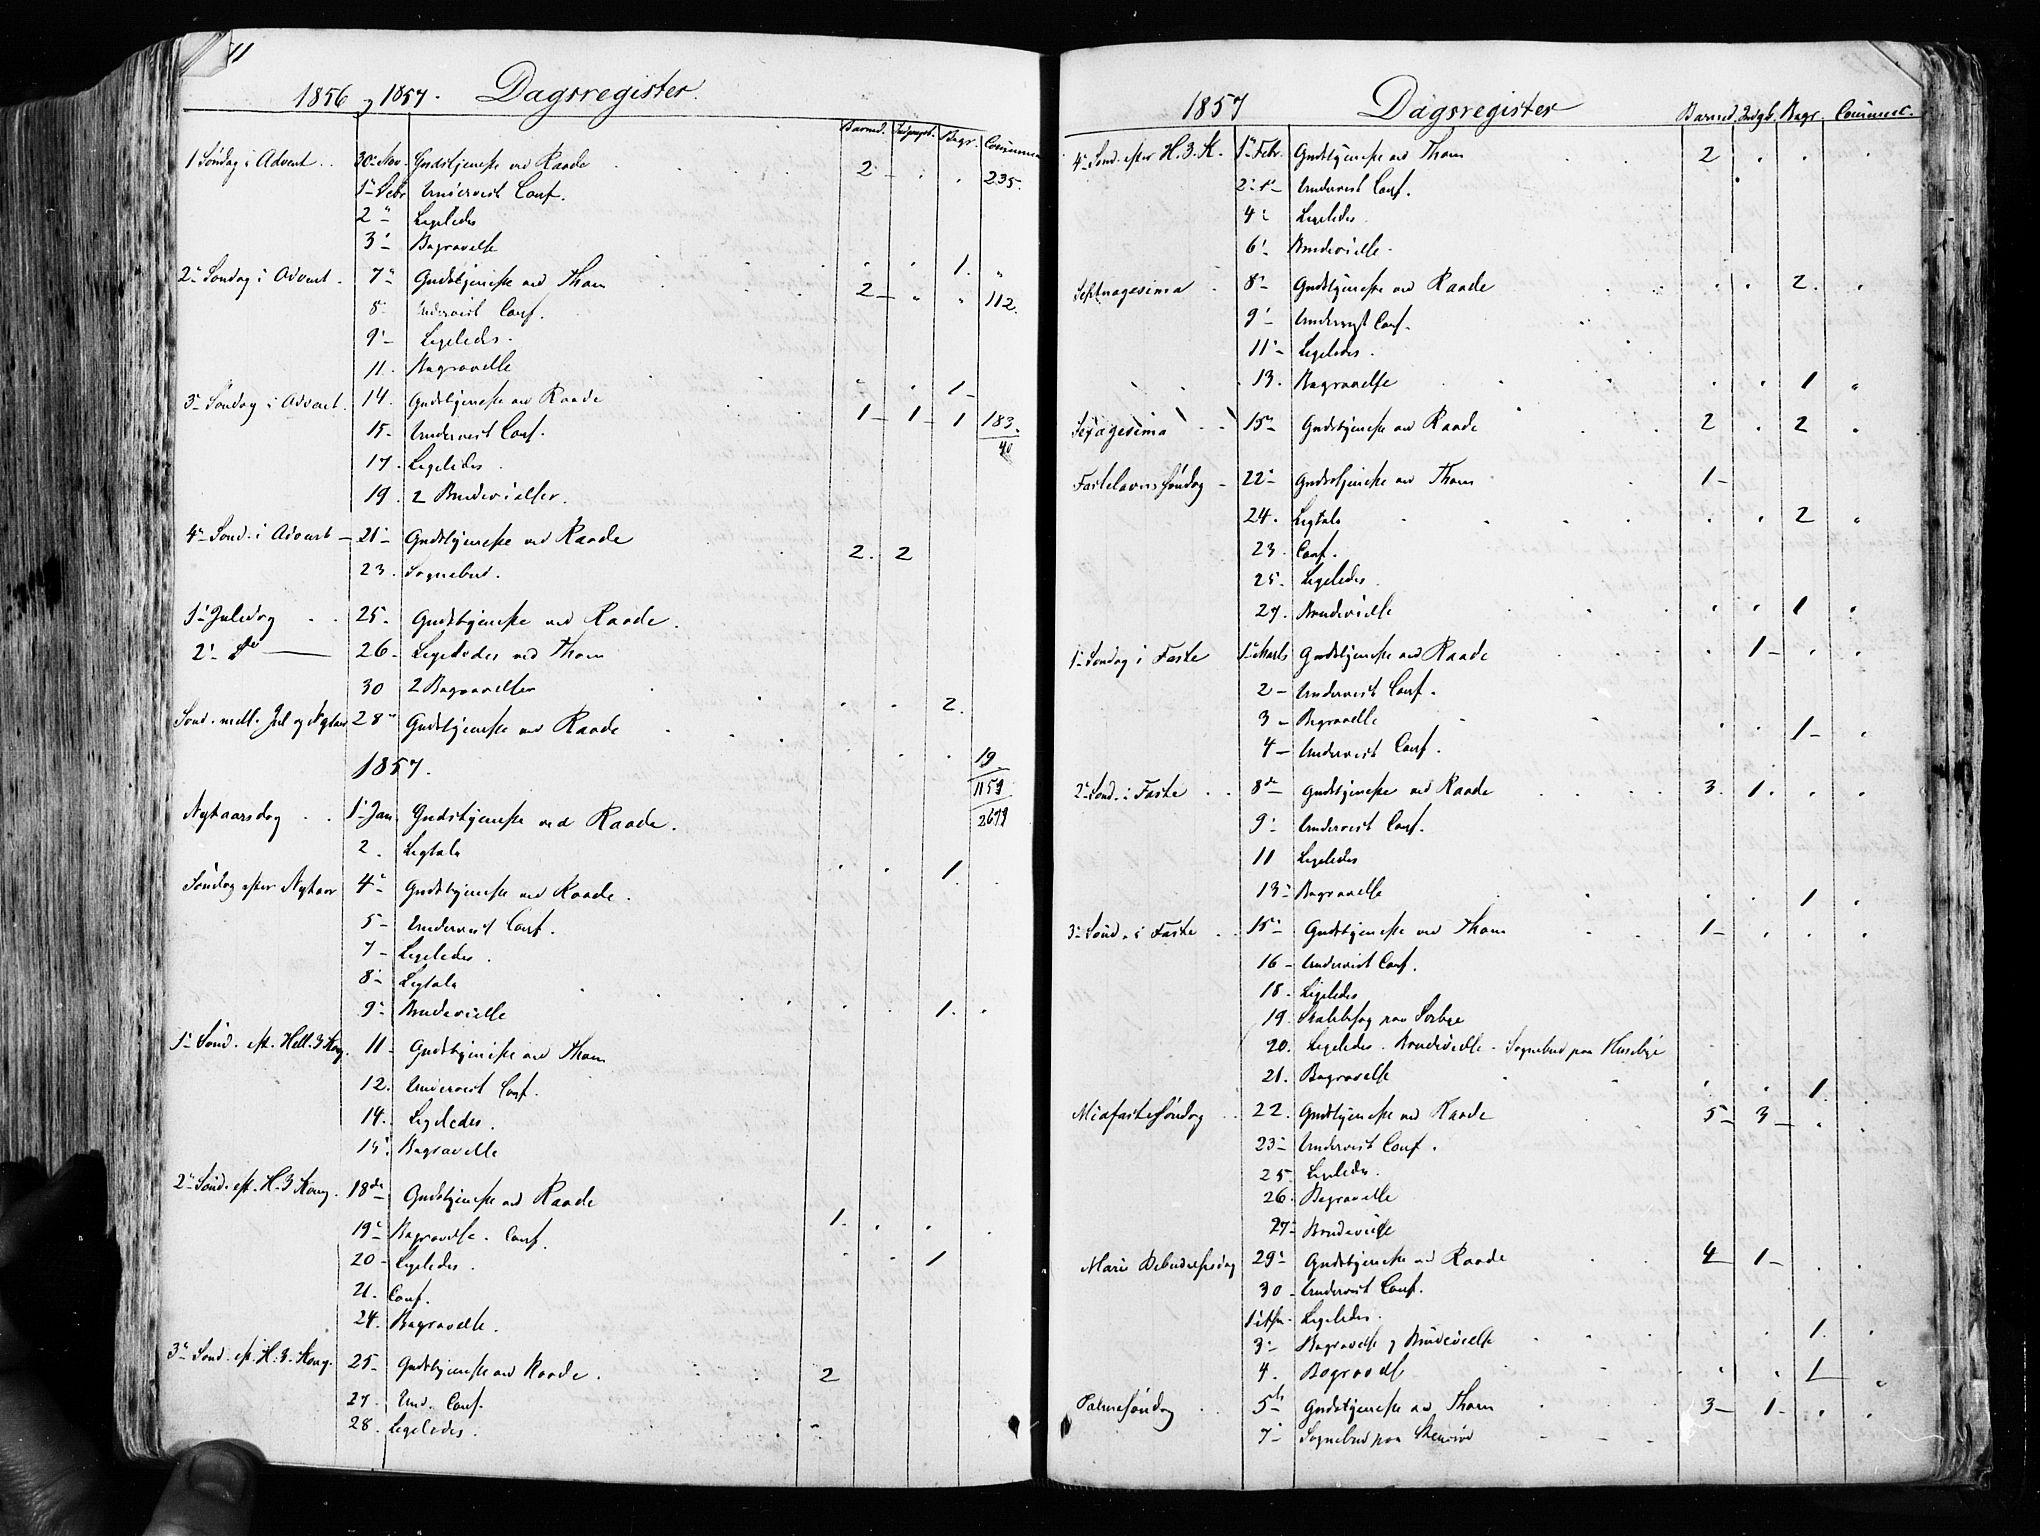 11
1856 og 1857. Dagsregister.
Barned. Indgangsk. Begr. Commun
1 Søndag i Advent . . 30te Nov. Gudstjeneste ved Raade 2 - . . 235.
1ste Debr Undervist Conf.
2den Ligeledes
3die Begravelse . . 1. "
2den Søndag i Advent . 7de Gudstjeneste ved Thom 2 - " " 112.
8de Undervist Conf.
9de Ligeledes .
11. Begravelse . . 1 -
3die Søndag i Advent . 14. Gudstjeneste ved Raade 1 - 1 - 1 183.
15 - Undervist Conf. 40
17. Ligeledes
19. 2 Brudevielser.
4de Sønd. i Advent - 21de Gudstjeneste ved Raade 2. 2
23. Sognebud.
1ste Juledag . . 25. Gudstjeneste ved Raade .
2. Do — 26 - Ligeledes ved Thom
30 2 Begravelser . . 2.
Sønd. mell. Jul og Nytaar 28de Gudstjeneste ved Raade . . . 19
1857. 1159
Nytaarsdag . . 1ste Jan Gudstjeneste ved Raade . 2699
2. Ligtale . . 1.
Søndag efter Nytaar 4de Gudstjeneste ved Raade .
5 - Undervist Conf.
7 - Ligeledes .
8de Ligtale
9de Brudevielse . . 1. .
1ste Sønd. eft. Hell. 3 Kong. 11 - Gudstjeneste ved Thom
12. Undervist Conf.
14. Ligeledes .
15. Begravelse
2den Sønd. eft. H. 3 Kong. 18de Gudstjeneste ved Raade 1. . .
19de Begravelse . Conf. . . 1
20 - Ligeledes .
21. Conf.
24. Begravelse.
3die Sønd. eft. H. 3. Kong. 25 - Gudstjeneste ved Raade . 2
27. Und. Conf.
28. Ligeledes .
1857 Dagsregister Barned. Indgk. Begr. Commnc.
4de Sønd. efter H. 3. K. 1ste Febr. Gudstjeneste ved Thom 2 . . .
2den Undervist Conf.
4de Ligeledes
6te Brudevielse .
Septuagesima . 8de Gudstjeneste ved Raade . . 2. .
9de Undervist Conf.
11te Ligeledes .
13. Begravelse . . 1 "
Sexagesima . . 15de Gudstjeneste ved Raade 2 . 2 .
Fastelavnssøndag - 22de Gudstjeneste ved Thom 1 -
24. Ligtale . . 2 "
23. Conf.
25. Ligeledes
27. Brudevielse . . 1 .
1ste Søndag i Faste 1ste Marts Gudstjeneste ved Raade . 1 - . .
2 - Undervist Conf.
3 - Begravelse . . 1 - .
4 - Undervist Conf.
2den Sønd. i Faste . . 8de Gudstjeneste ved Raade 3. 1. . .
9de Undervist Conf.
11 Ligeledes
13de Begravelse . . 1 .
3die Sønd. i Faste . . 15de Gudstjeneste ved Thom 1 - . . .
16 - Undervist Conf.
18. Ligeledes
19.
20. Ligeledes . Brudevielse - Sognebud paa Huseby
21. Begravelse . . 1. .
Midfastesøndag . . 22. Gudstjeneste ved Raade 5 - 3 - . .
23de Undervist Conf.
25. Ligeledes .
26. Begravelse
27de Brudevielse
Marie Bebudelsesdag 29de Gudstjeneste ved Raade 4 1 - . .
30 - Undervist Conf.
1 Apr. Ligeledes .
3die Begravelse og Brudevielse . . 1. .
4. Begravelse . . 1 - "
Palmesøndag . . 5te Gudstjeneste ved Thom 3 - 1 - . .
7de Sognebud paa